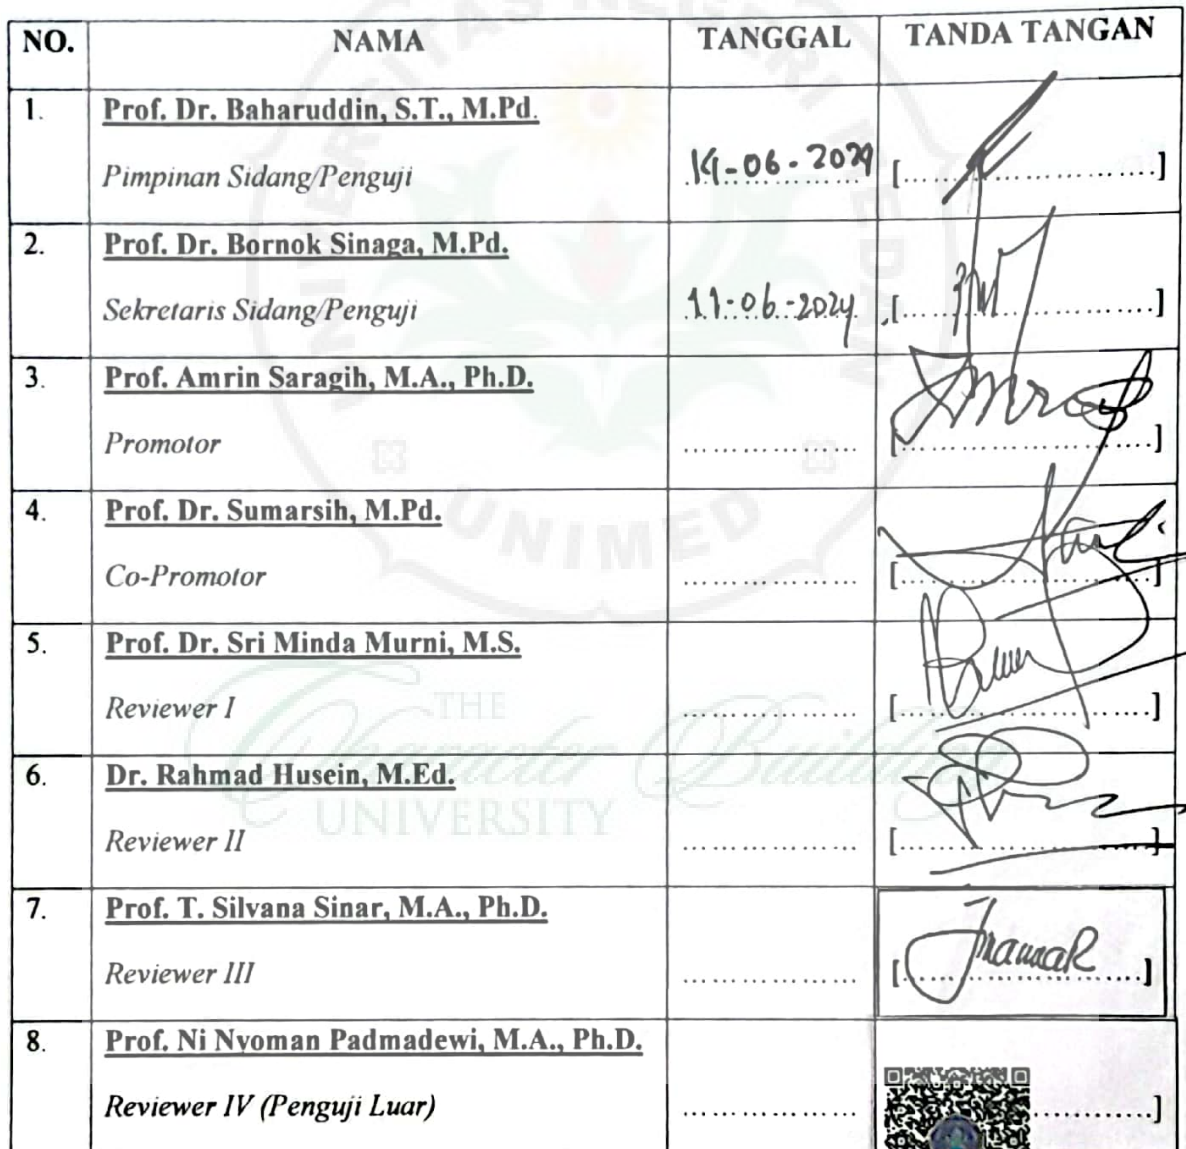 NO. NAMA TANGGAL TANDA TANGAN
1. Prof. Dr. Baharuddin, S.T., M.Pd.
Pimpinan Sidang/Penguji 14-06-2024 [....................]
2. Prof. Dr. Bornok Sinaga, M.Pd.
Sekretaris Sidang/Penguji 11-06-2024 [....................]
3. Prof. Amrin Saragih, M.A., Ph.D.
Promotor .................. [....................]
4. Prof. Dr. Sumarsih, M.Pd.
Co-Promotor .................. [....................]
5. Prof. Dr. Sri Minda Murni, M.S.
Reviewer I .................. [....................]
6. Dr. Rahmad Husein, M.Ed.
Reviewer II .................. [....................]
7. Prof. T. Silvana Sinar, M.A., Ph.D.
Reviewer III .................. [....................]
8. Prof. Ni Nyoman Padmadewi, M.A., Ph.D.
Reviewer IV (Penguji Luar) .................. ..........]
UNIVERSITAS NEGERI MEDAN
UNIMED
THE
Character Building
UNIVERSITY